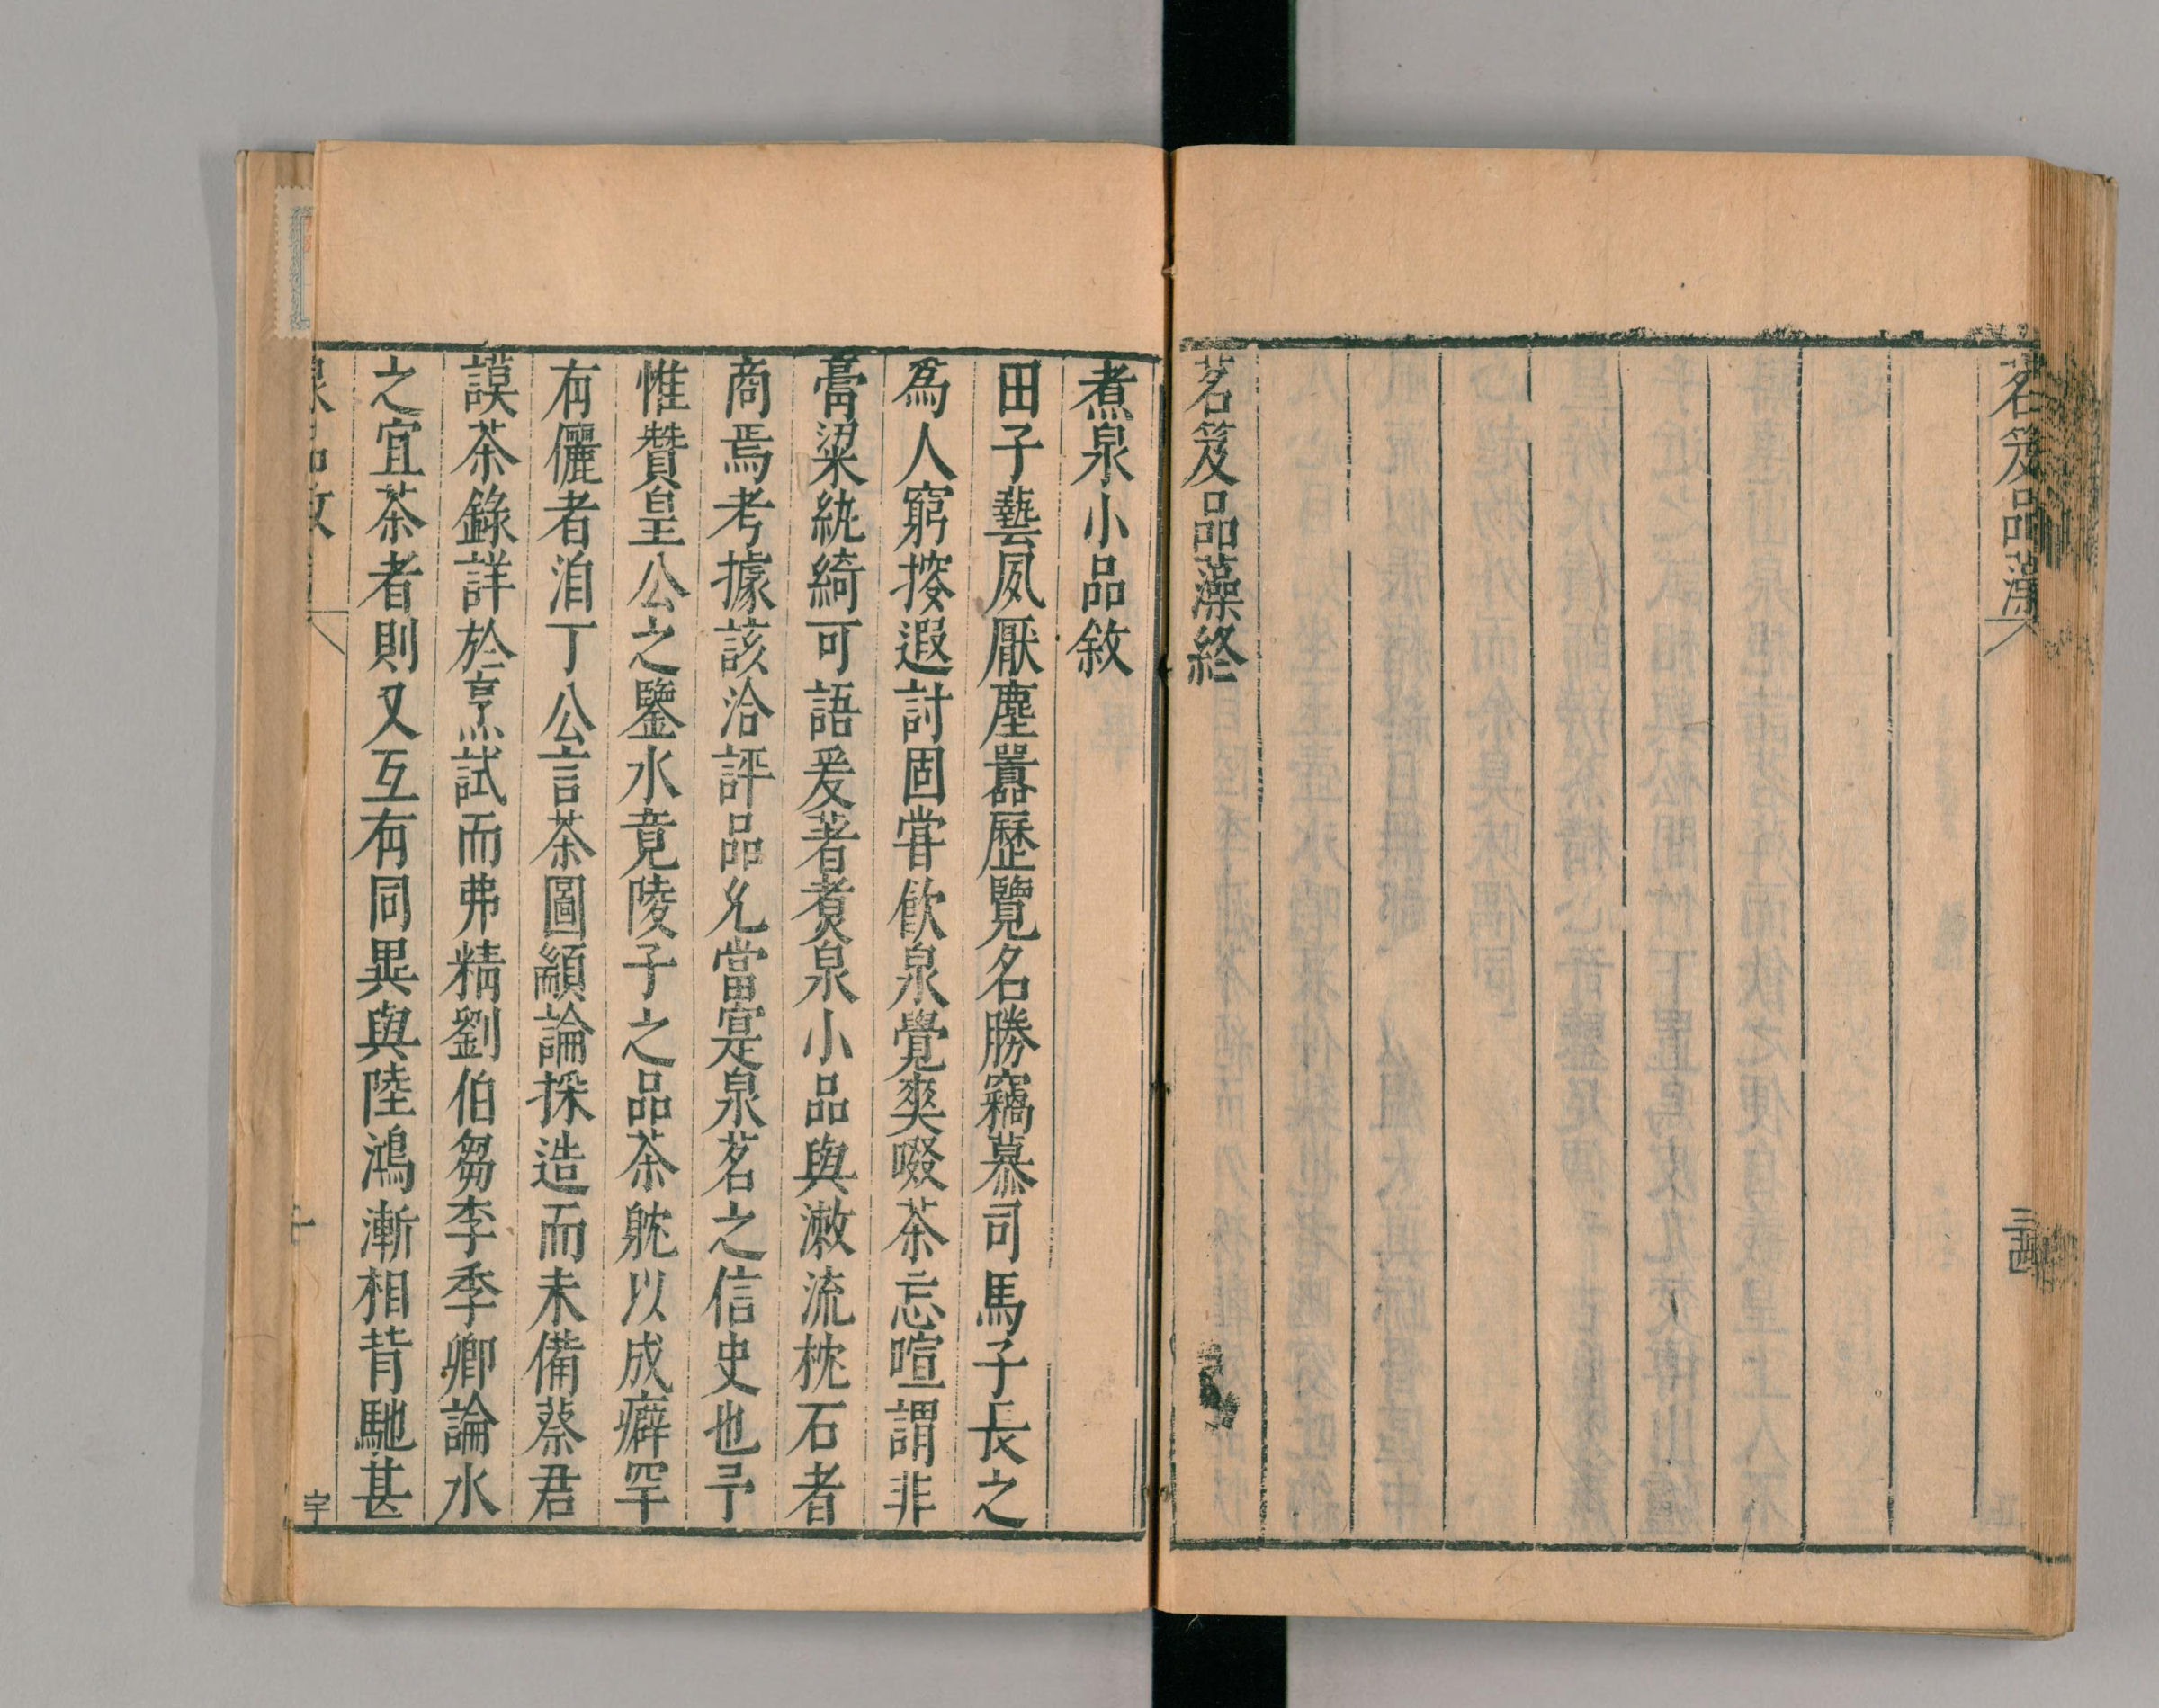 茗笈品藻
三十四
茗笈品藻終
煮泉小品敘
田子藝夙厭塵囂歷覽名勝竊慕司馬子長之
爲人窮搜遐討固嘗飲泉覺爽啜茶忘喧謂非
膏粱紈綺可語爰著煮泉小品與漱流枕石者
商焉考據該洽評品允當寔泉茗之信史也予
惟贊皇公之鑒水竟陵子之品茶躭以成癖罕
有儷者洎丁公言茶圖顓論採造而未備蔡君
謨茶錄詳於烹試而弗精劉伯芻李季卿論水
之宜茶者則又互有同異與陸鴻漸相背馳甚